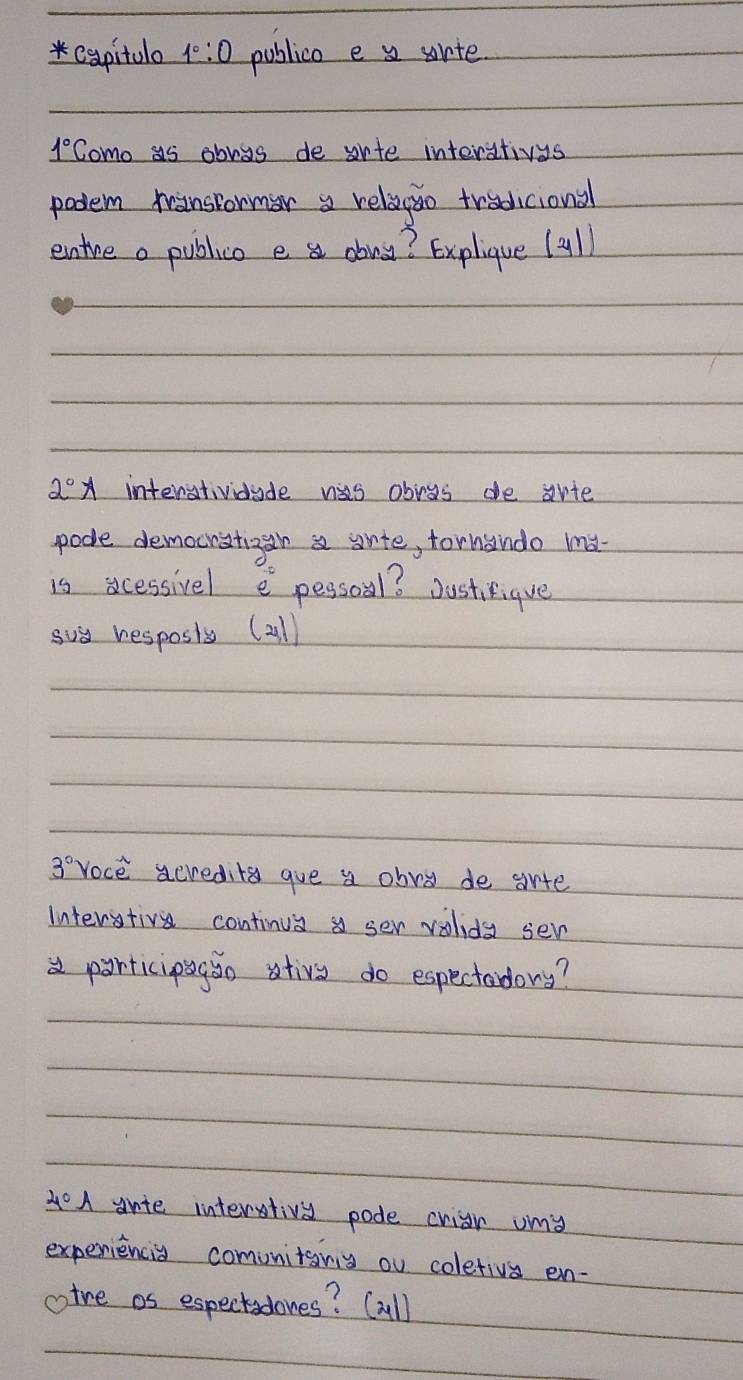 *Capítulo 1º: O público e a arte.
1º Como as obras de arte interativas
podem transformar a relação tradicional
entre o público e a obra? Explique (4l)
2º A interatividade nas obras de arte
pode democratizar a arte, tornando ma-
is acessível e pessoal? Justifique
sua resposta (4l)
3º Você acredita que a obra de arte
Interativa continua a ser válida ser
a participação ativa do espectadora?
4º A arte interativa pode criar uma
experiência comunitária ou coletiva en-
tre os espectadores? (4l)